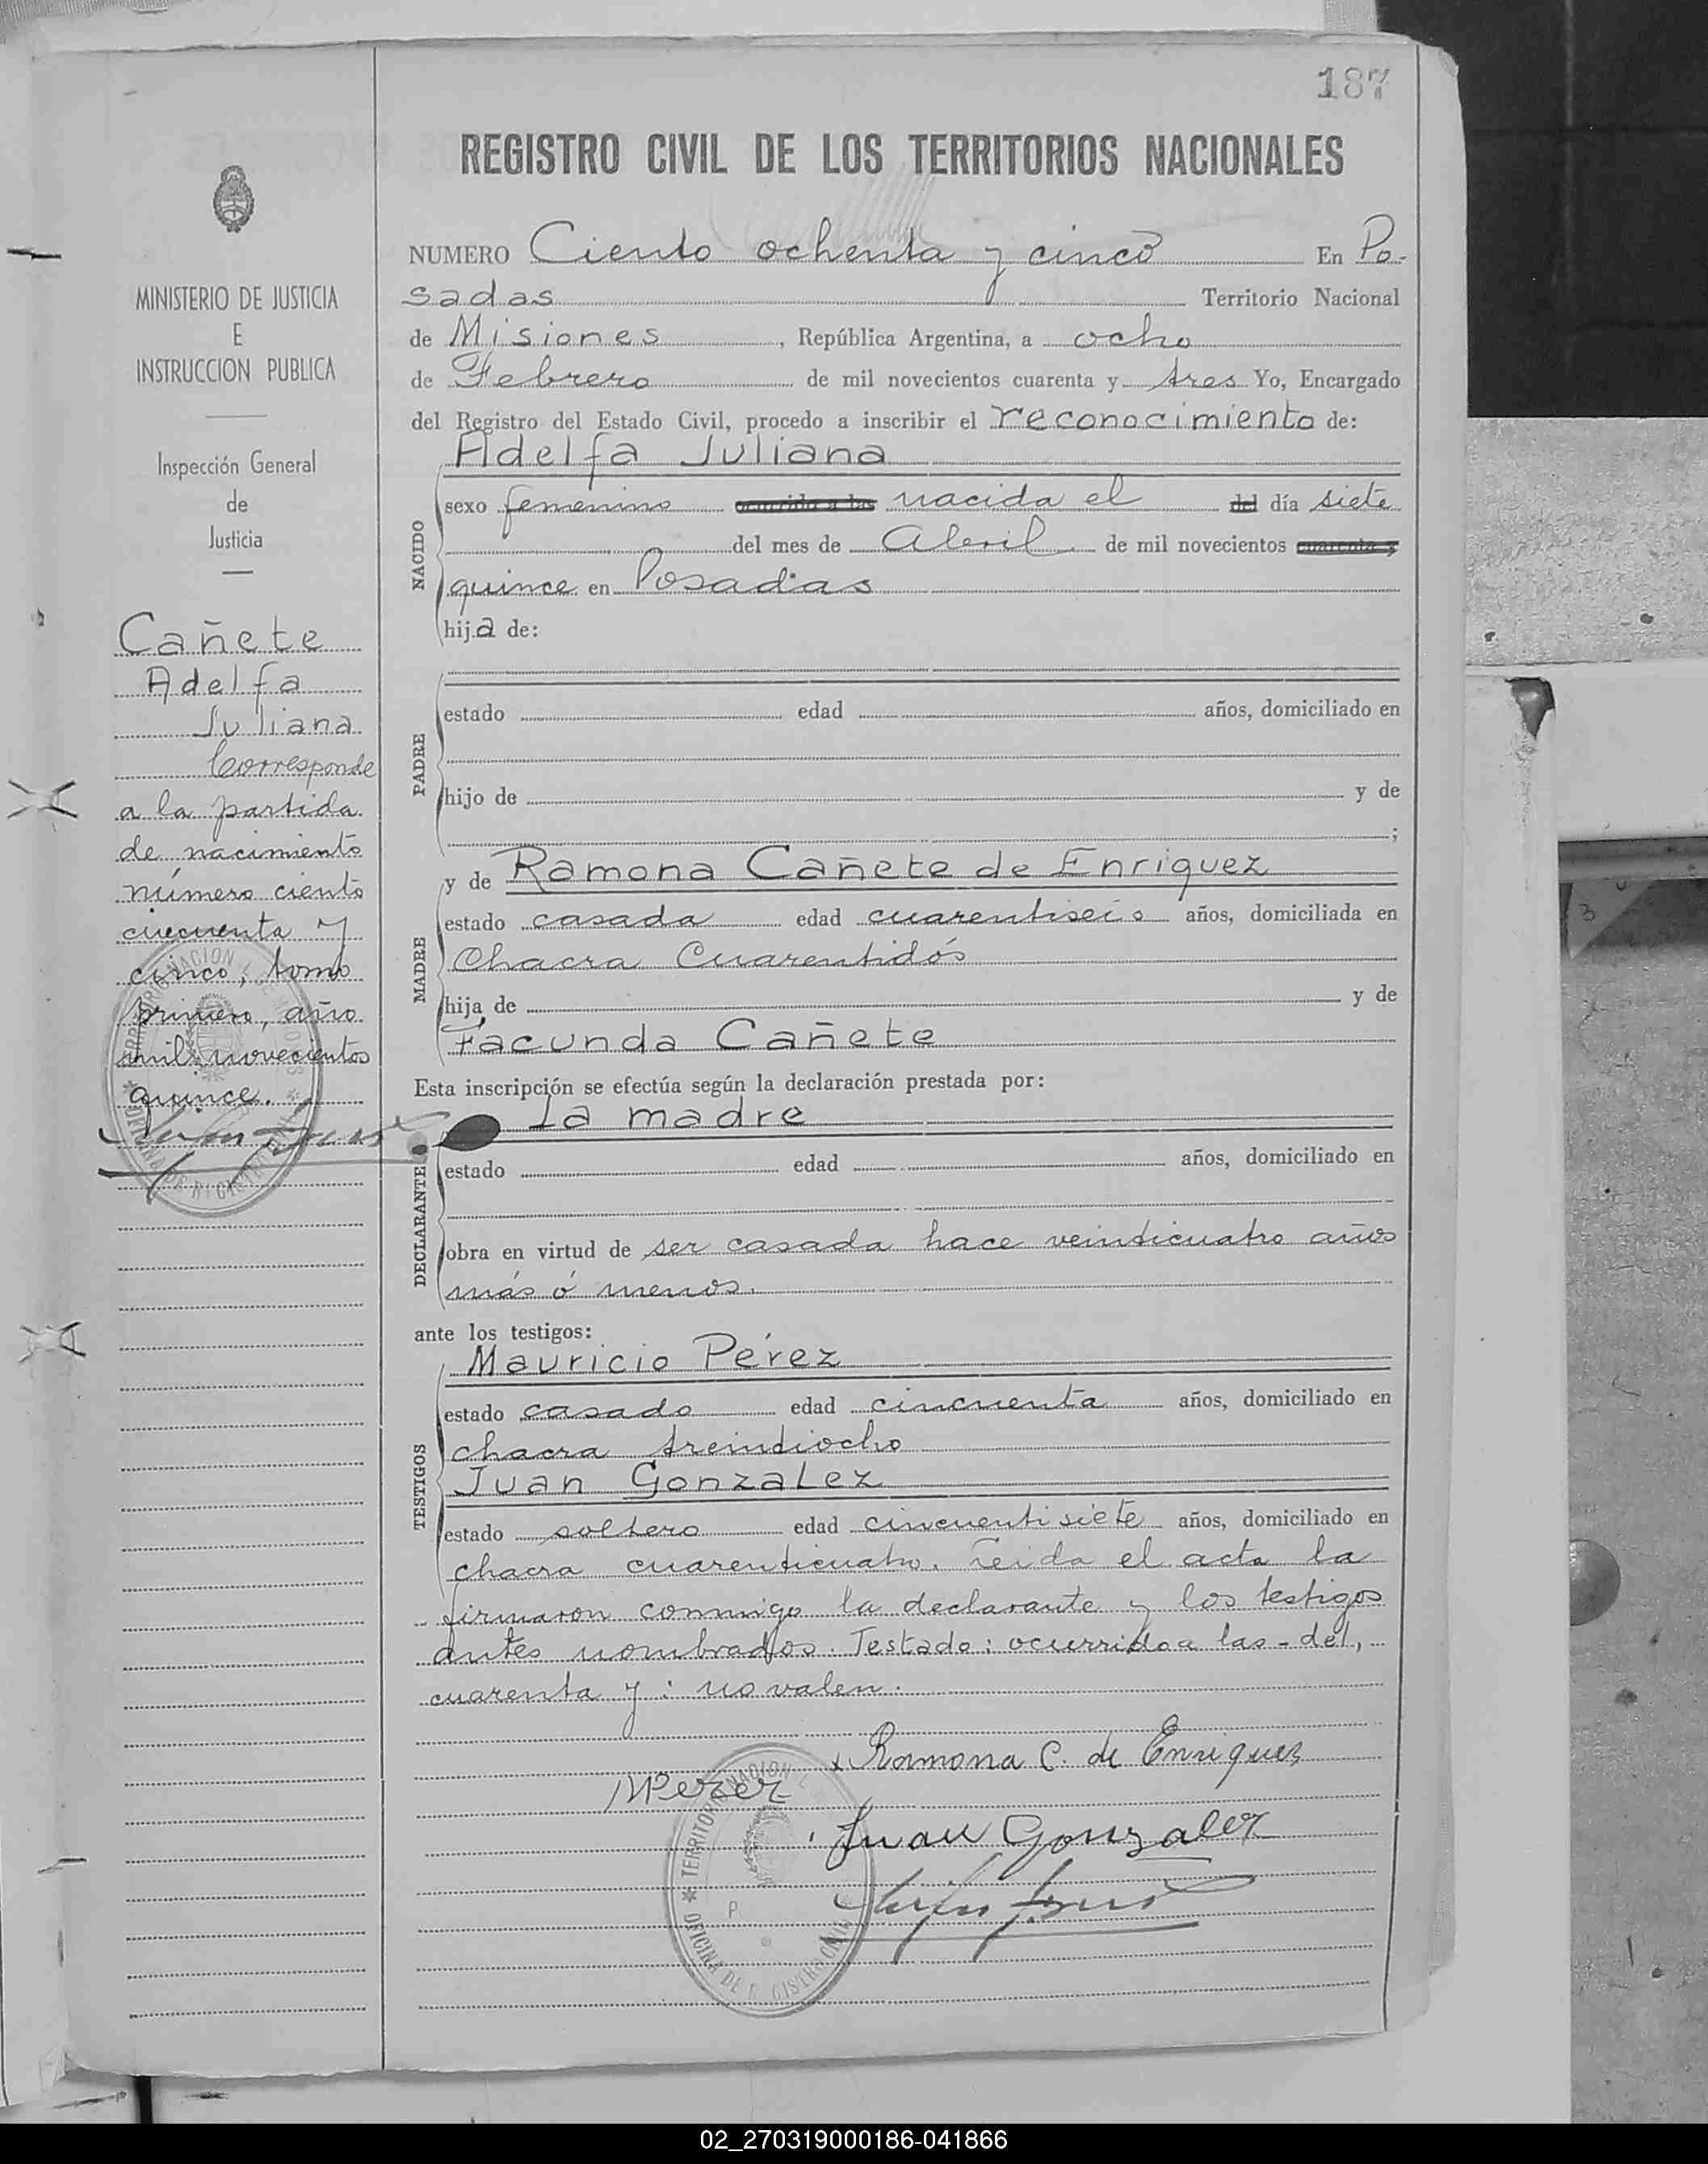 187
REGISTRO CIVIL DE LOS TERRITORIOS NACIONALES
MINISTERIO DE JUSTICIA
E
INSTRUCCION PUBLICA
Inspección General
de
Justicia
Cañete
Adelfa
Juliana
Corresponde
a la partida
de nacimiento
número ciento
cincuenta y
cinco, tomo
primero, año
mil novecientos
quince.
NUMERO Ciento ochenta y cinco En Po-
sadas Territorio Nacional
de Misiones, República Argentina, a ocho
de Febrero de mil novecientos cuarenta y tres Yo, Encargado
del Registro del Estado Civil, procedo a inscribir el reconocimiento de:
Adelfa Juliana
NACIDO
sexo femenino ocurrido a las nacida el del día siete
del mes de Abril de mil novecientos cuarenta y
quince en Posadas
hija de:
PADRE
estado edad años, domiciliado en
hijo de y de
;
MADRE
y de Ramona Cañete de Enriquez
estado casada edad cuarentiseis años, domiciliada en
Chacra Cuarentidós
hija de y de
Facunda Cañete
Esta inscripción se efectúa según la declaración prestada por:
La madre
DECLARANTE
estado edad años, domiciliado en
obra en virtud de ser casada hace veinticuatro años
más ó menos.
ante los testigos:
TESTIGOS
Mauricio Pérez
estado casado edad cincuenta años, domiciliado en
chacra treintiocho
Juan Gonzalez
estado soltero edad cincuentisiete años, domiciliado en
chacra cuarenticuatro. Leida el acta la
firmaron conmigo la declarante y los testigos
antes nombrados. Testado: ocurrido a las - del,
cuarenta y: no valen.
Ramona C. de Enriquez
MPerez
Juan Gonzalez
OFICINA DE
TERRITOR NACION
3
02_270319000186-041866